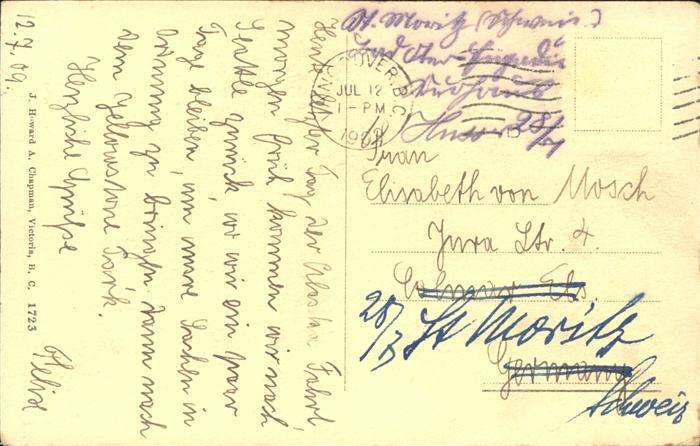 12.7.09.
Heute letzter Tag der Alaska Fahrt,
morgen früh kommen wir nach
Seattle zurück, wo wir ein paar
Tage bleiben, um unsere Sachen in
Ordnung zu bringen, dann nach
dem Yellowstone Park.
Herzliche Grüße
Felix
J. Howard A. Chapman, Victoria, B. C. 1723
VANCOUVER B.C.
JUL 12
1-PM
1909
St. Moritz (Schweiz.)
Ober-Engadin
Kurhaus
28/7
Frau
Elisabeth von Mosch
Jura Str. 4.
Colmar Els.
28/7 St Moritz
Germany
Schweiz